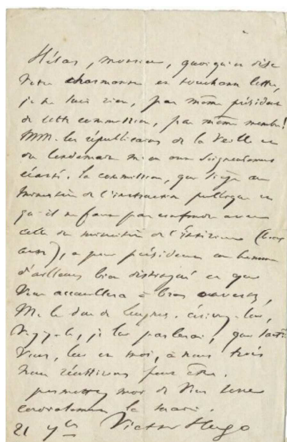 Hélas, monsieur, quoiqu'en dise
votre charmante et touchante lettre,
je ne suis rien, pas même président
de cette commission, pas même membre!
MM. les républicains de la veille et
du lendemain m'en ont soigneusement
écarté. la commission, qui siège au
ministère de l'instruction publique et
qu'il ne faut pas confondre avec
celle du ministère de l'Intérieur
a pour président un homme
d'ailleurs bien distingué et qui
vous accueillera à bras ouverts,
M. le duc de Luynes. écrivez-lui,
je lui parlerai,
vous, lui et moi, à nous trois
nous réussirons peut-être.
permettez moi de vous serrer
cordialement la main.
21 Victor Hugo